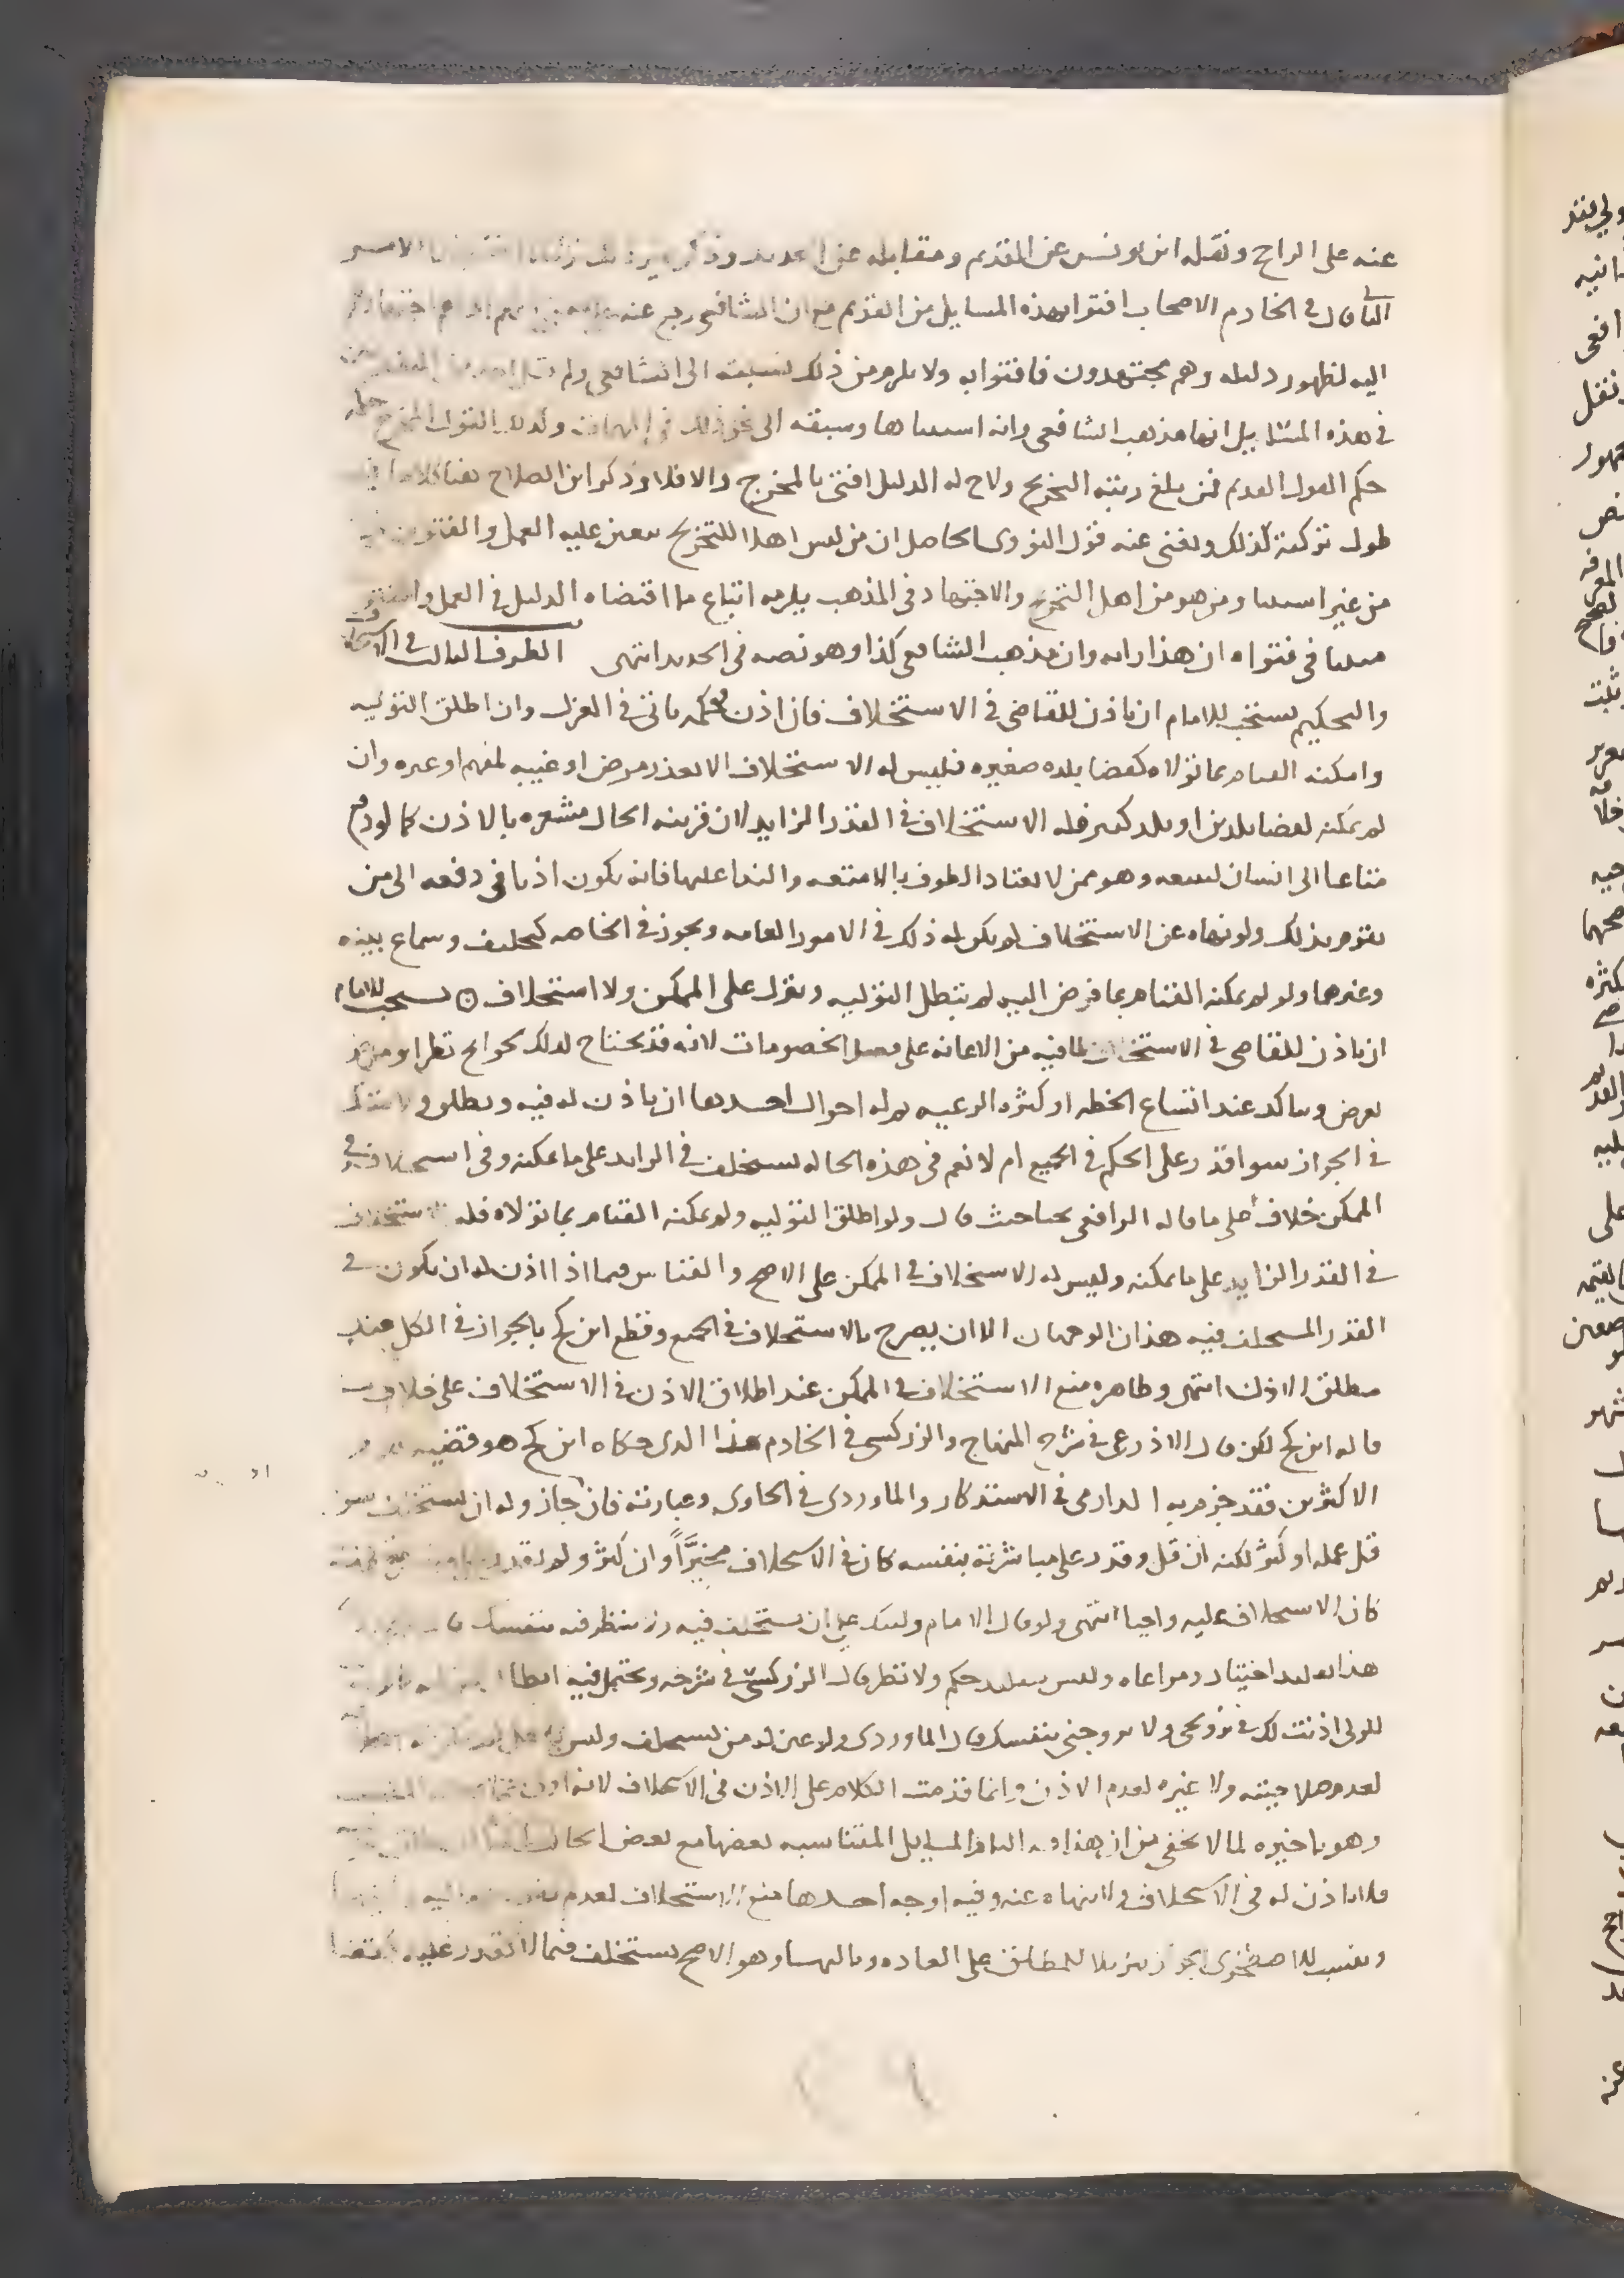 عنه على الراجح ونقله ابن يونس عن القديم ومقابله عن الجديد
قال في الخادم الاصحاب افتوا بهذه المسايل من القديم مع ان الشافعي رجع عنه
اليه لظهور دليله وهم مجتهدون فافتوا به ولا يلزم من ذلك نسبته الى الشافعي ولم
في هذه المسايل انها مذهب الشافعي وانه استثناها وسبقه الى نحو ذلك في المهمات وكذلك القول المخرج حكمه
حكم القول القديم فمن بلغ رتبة التخريج ولاح له الدليل افتى بالمخرج والا فلا وذكر ابن الصلاح هنا كلاما فيه
طول تركته لذلك ويغني عنه قول النووي الحاصل ان من ليس اهلا للتخريج يتعين عليه العمل والفتوى
من غير استثنا ومن هو من اهل التخريج والاجتهاد في المذهب يلزمه اتباع ما اقتضاه الدليل في العمل والفتوى
مبينا في فتواه ان هذا رايه وان مذهب الشافعي كذا وهو نصه في الجديد انتهى الطرف الثالث في الاستخلاف
والتحكيم يستحب للامام ان ياذن للقاضي في الاستخلاف فان اذن فحكمه ياتي في العزل وان اطلق التوليه
وامكنه القيام بما تولاه كقضا بلده صغيره فليس له الاستخلاف الا لعذر مرض او غيبه لمهم او غيره وان
لم يمكنه لقضا بلدين او بلد كبير فله الاستخلاف في القدر الزايد لان قرينه الحال مشعره بالاذن كما لو دفع
متاعا الى انسان ليبيعه وهو ممن لا يعتاد الطوف بالامتعه والندا عليها فانه يكون اذنا في دفعه الى من
يقوم بذلك ولو نهاه عن الاستخلاف لم يكن له ذلك في الامور العامه ويجوز في الخاصه كتحليف وسماع بينه
وغيرهما ولو لم يمكنه القيام بما فوض اليه لم تبطل التوليه وينزل على الممكن ولا استخلاف ۝ يستحب للامام
ان ياذن للقاضي في الاستخلاف لما فيه من الاعانه على فصل الخصومات لانه قد يحتاج لذلك لحوايج تطرا ومرض
يعرض ويتاكد عند اتساع الخطه او كثره الرعيه ثم له احوال احدها ان ياذن له فيه ويطلق
في الجواز سوا قدر على الحكم في الجميع ام لا نعم في هذه الحاله يستخلف في الزايد على ما يمكنه وفي استخلافه في
الممكن خلاف على ما قاله الرافعي بحثا حيث قال ولو اطلق التوليه ولم يمكنه القيام بما تولاه فله الاستخلاف
في القدر الزايد على ما يمكنه وليس له الاستخلاف في الممكن على الاصح والقياس فيما اذا اذن له ان يكون في
القدر المستخلف فيه هذان الوجهان الا ان يصرح بالاستخلاف في الجميع وقطع ابن كج بالجواز في الكل عند
مطلق الاذن انتهى وظاهره منع الاستخلاف في الممكن عند اطلاق الاذن في الاستخلاف على خلاف
ما له ابن كج لكن قال الاذرعي في شرح المنهاج والزركشي في الخادم هذا الذي حكاه ابن كج هو قضيه كلام
الاكثرين فقد جزم به الدارمي في الاستذكار والماوردي في الحاوي وعبارته فان جاز وله ان يستخلف سوا
قل عمله او كثر لكنه ان قل وقدر على مباشرته بنفسه كان في الاستخلاف مخيرًا وان كثر ولم يقدر
كان الاستخلاف عليه واجبا انتهى ولو قال الامام وليتك على ان تستخلف فيه ولا تنظر فيه بنفسك قال
هذا تقليد اختيار ومراعاه وليس بتقليد حكم ولا نظر قال الزركشي في شرحه ويحتمل فيه ابطال
للولي اذنت لك في تزويجي ولا تزوجني بنفسك قال الماوردي ولو عين له من يستخلف وليس
لعدم صلاحيته ولا غيره لعدم الاذن وانما قدمت الكلام على الاذن في الاستخلاف لانه
وهو تاخيره لما لا يخفى من ان هذا المسايل المتناسبه بعضها مع بعض الحال
فلا ياذن له في الاستخلاف ولا ينهاه عنه وفيه اوجه احدها منع الاستخلاف لعدم
وينسب للاصطخري الجواز تنزيلا للمطلق على العاده وثالثها وهو الاصح يستخلف فيما لا يقدر عليه كقضا